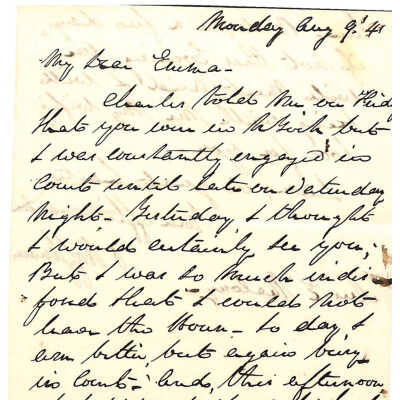 Monday Aug 9th 41
My Dear Emma -
Charles told me on Frid
that you were in N York but
I was constantly engaged in
Court until late on Saturday
Night - Yesterday, I thought
I would certainly see you,
But I was so much indis
posed that I could not
leave the House - To day, I
am better, but again busy
in Court - and, this afternoon